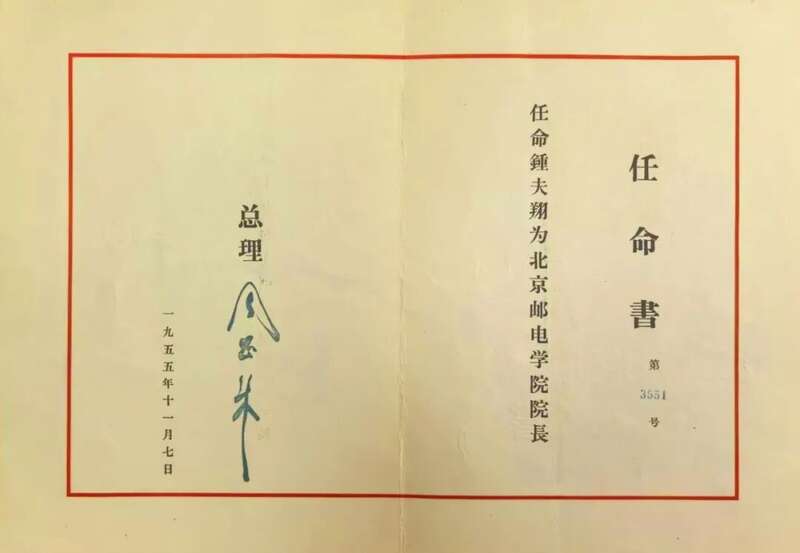 任命書
第
3551
号
任命鍾夫翔为北京邮电学院院長
总理
周恩来
一九五五年十一月七日